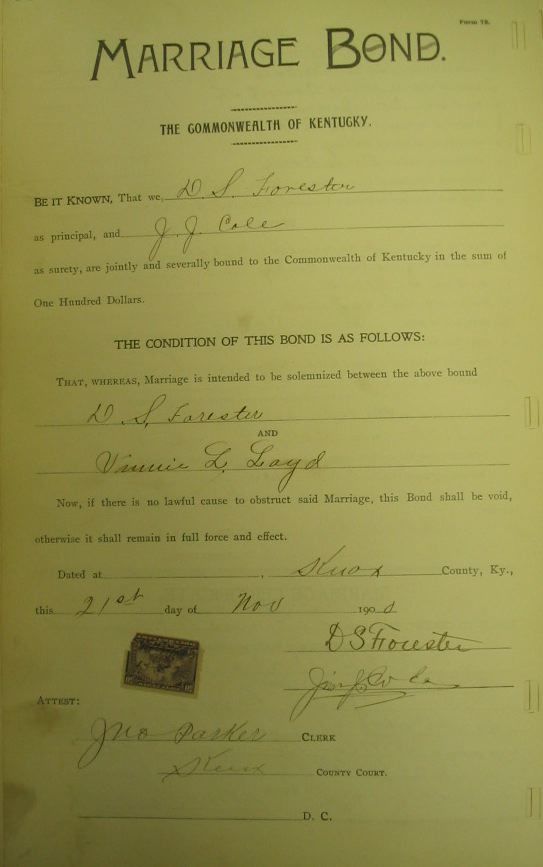 Form 78.
MARRIAGE BOND.
THE COMMONWEALTH OF KENTUCKY.
BE IT KNOWN, That we, D. S. Forester
as principal, and J. J. Cole
as surety, are jointly and severally bound to the Commonwealth of Kentucky in the sum of
One Hundred Dollars.
THE CONDITION OF THIS BOND IS AS FOLLOWS:
THAT, WHEREAS, Marriage is intended to be solemnized between the above bound
D. S. Forester
AND
Vinnie L. Loyd
Now, if there is no lawful cause to obstruct said Marriage, this Bond shall be void,
otherwise it shall remain in full force and effect.
Dated at , Knox County, Ky.,
this 21st day of Nov 1900
D S Forester
ATTEST:
Jno Parker CLERK
Knox COUNTY COURT.
D. C.